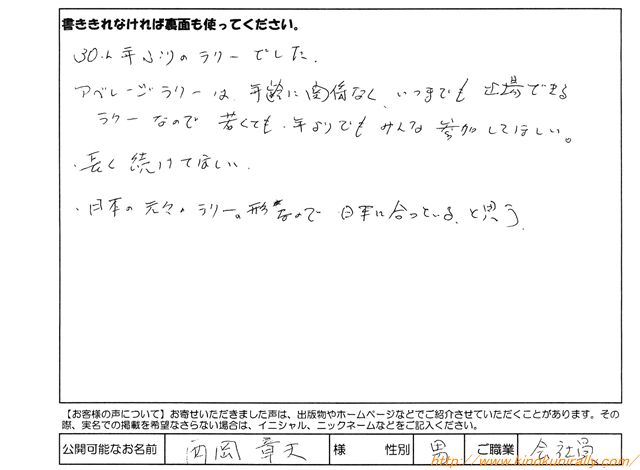 書ききれなければ裏面も使ってください。
30ん年ぶりのラリーでした.
アベレージラリーは、年齢に関係なく、いつまでも出場できる
ラリーなので 若くても、年よりでもみんな参加してほしい。
・長く続けてほしい
・日本の元々のラリーの形なので 日本に合っている、と思う
【お客様の声について】お寄せいただきました声は、出版物やホームページなどでご紹介させていただくことがあります。その
際、実名での掲載を希望なさらない場合は、イニシャル、ニックネームなどをご記入ください。
公開可能なお名前 西岡 章夫 様 性別 男 ご職業 会社員
http://www.kinokunirally.com/